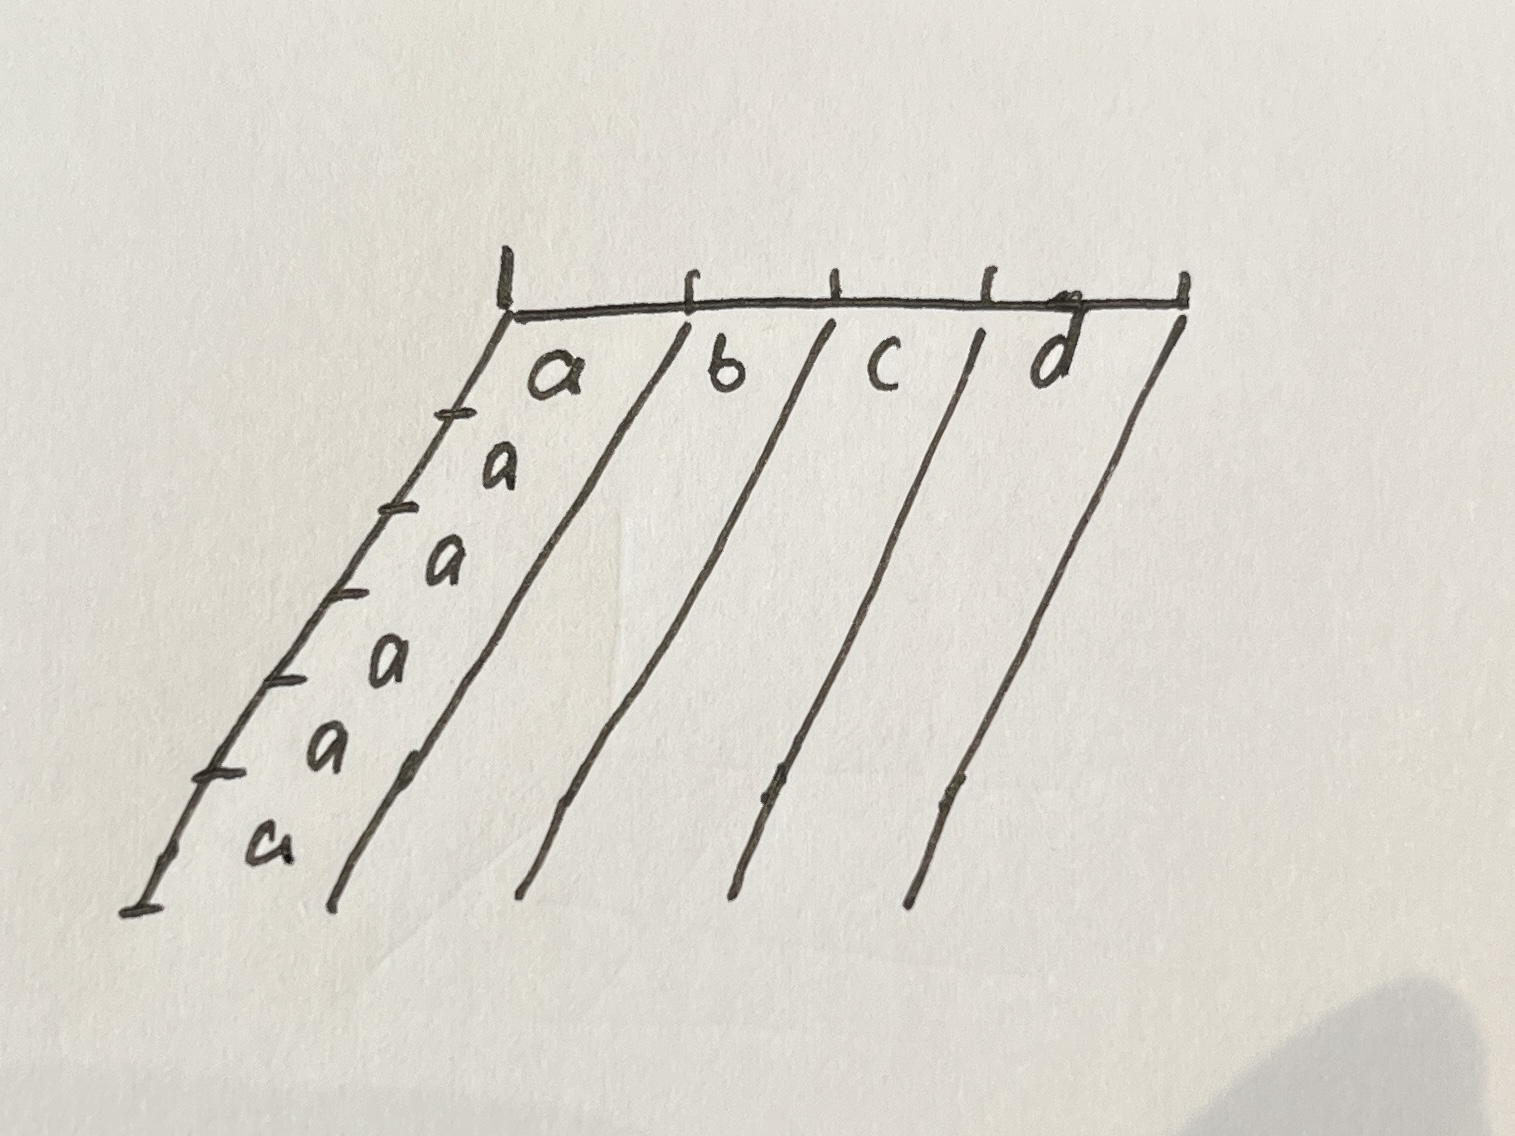 a b c d
a
a
a
a
a